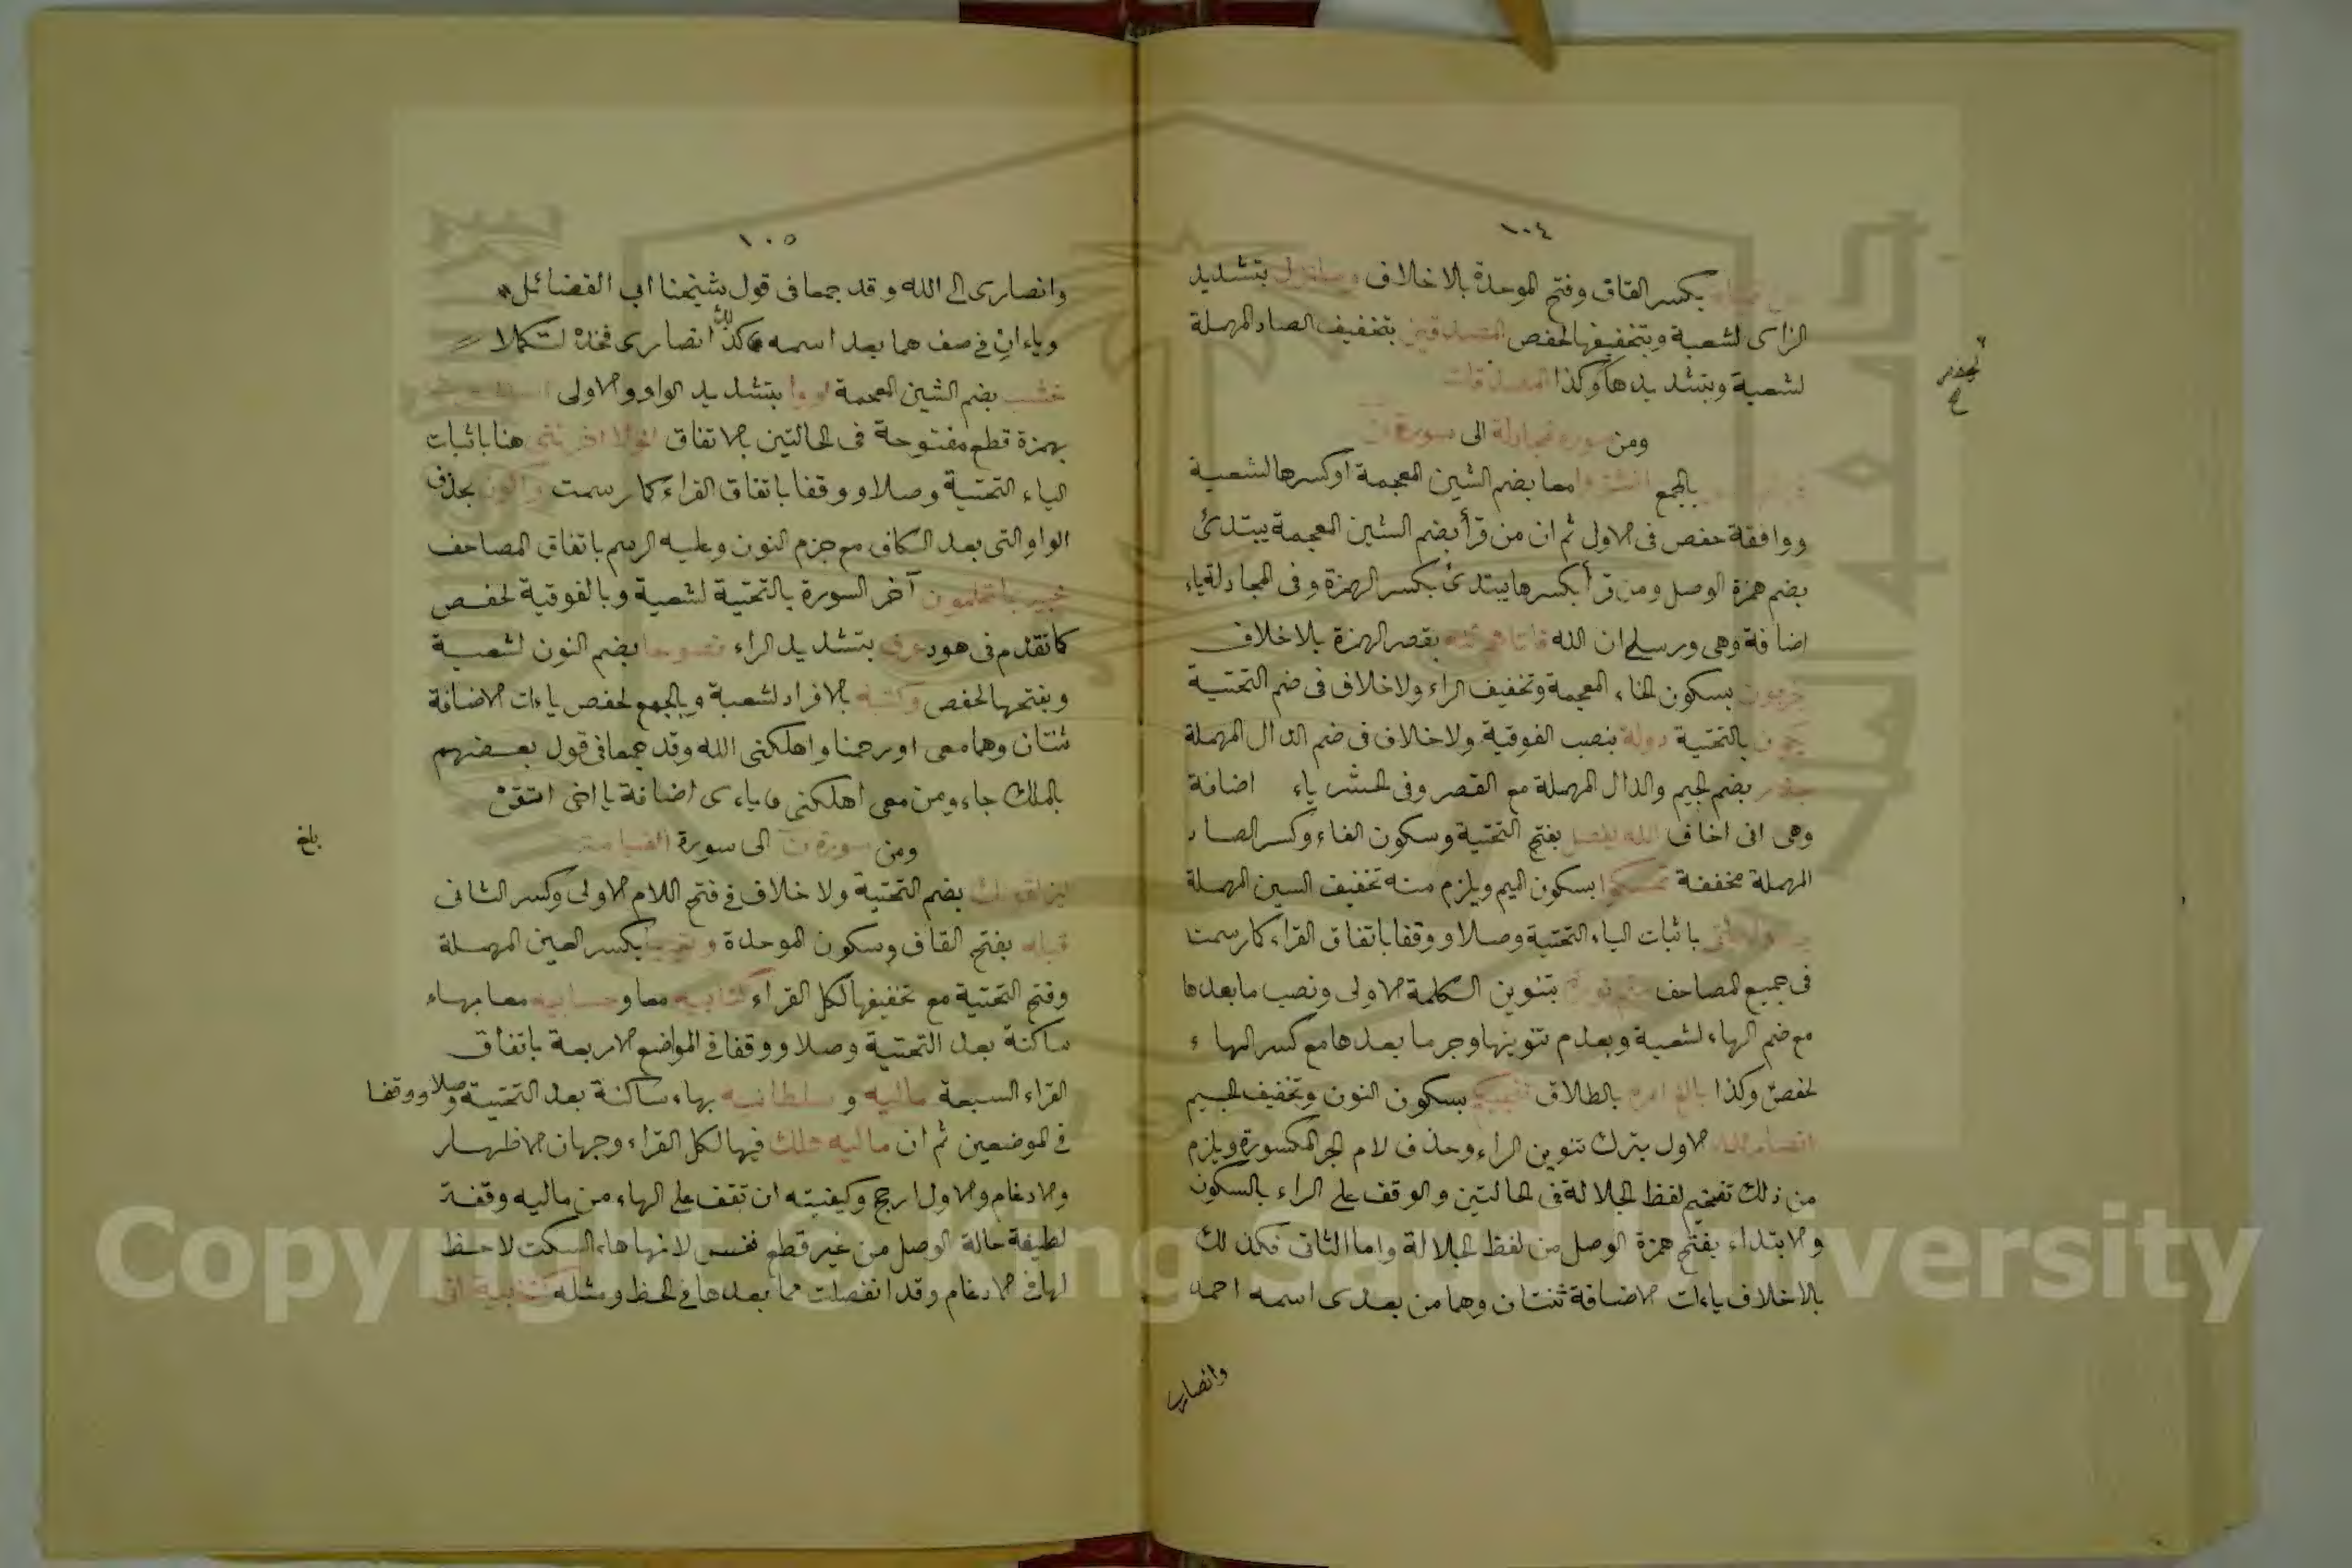 ١٠٤
بكسر القاف وفتح الموحدة بلا خلاف بتشديد
الزاى لشعبة وبتخفيفها لحفص المصدقين بتخفيف الصاد المهملة
لشعبة وبتشديدها وكذا المصدقات
لحفص
ومن سورة مجادلة الى سورة ن
بالجمع انشزوا معا بضم الشين المعجمة اوكسرها لشعبة
ووافقة حفص فى الاولى ثم ان من قرأ بضم الشين المعجمة يبتدئ
بضم همزة الوصل ومن قرأ بكسرها يبتدئ بكسر الهمزة وفى المجادلة ياء
اضافة وهى ورسلى ان الله فاتاهم الله بقصر الهمزة بلا خلاف
يخربون بسكون الخاء المعجمة وتخفيف الراء ولا خلاف فى ضم التحتية
يكون بالتحتية دولة بنصب الفوقية ولا خلاف فى ضم الدال المهملة
جدر بضم الجيم والدال المهملة مع القصر وفى الحشر ياء اضافة
وهى انى اخاف الله يفصل بفتح التحتية وسكون الفاء وكسر الصاد
المهملة مخففة تمسكوا بسكون الميم ويلزم منه تخفيف السين المهملة
باثبات الياء التحتية وصلا ووقفا باتفاق القراء كما رسمت
فى جميع المصاحف متم نوره بتنوين الكلمة الاولى ونصب ما بعدها
مع ضم الهاء لشعبة وبعدم تنوينها وجر ما بعدها مع كسر الهاء
لحفص وكذا بالغ امره بالطلاق تنجيكم بسكون النون وتخفيف الجيم
انصار الله الاول بترك تنوين الراء وحذف لام الجر المكسورة ويلزم
من ذلك تفخيم لفظ الجلالة فى الحالتين والوقف على الراء بالسكون
والابتداء بفتح همزة الوصل من لفظ الجلالة واما الثانى فكذلك
بلا خلاف ياءات الاضافة ثنتان وهما من بعدى اسمه احمد
وانصارى
١٠٥
وانصارى الى الله وقد جمعا فى قول شيخنا ابى الفضائل
وياءان فى صف هما بعد اسمه كذلك انصارى فخذ لتكملا
خشب بضم الشين المعجمة لووا بتشديد الواو والاولى
بهمزة قطع مفتوحة فى الحالتين بلا تفاق لولا اخرتنى هنا باثبات
الياء التحتية وصلا ووقفا باتفاق القراء كما رسمت واكن بحذف
الواو التى بعد الكاف مع جزم النون وعليه الرسم باتفاق المصاحف
خبير بما تعملون آخر السورة بالتحتية لشعبة وبالفوقية لحفص
كما تقدم فى هود عرف بتشديد الراء نصوحا بضم النون لشعبة
وبفتحها لحفص وكتبه بالافراد لشعبة وبالجمع لحفص ياءات الاضافة
ثنتان وهما معى اورحمنا واهلكنى الله وقد جمعا فى قول بعضهم
بالملك جاء ومن معى اهلكنى ياءى اضافة يا اخى اتقن
ومن سورة ن الى سورة القيامة
بلغ
ليزلقونك بضم التحتية ولا خلاف فى فتح اللام الاولى وكسر الثانى
قبله بفتح القاف وسكون الموحدة وتعيها بكسر العين المهملة
وفتح التحتية مع تخفيفها لكل القراء كتابيه معا وحسابيه معا بهاء
ساكنة بعد التحتية وصلا ووقفا فى المواضع الاربعة باتفاق
القراء السبعة ماليه وسلطانيه بهاء ساكنة بعد التحتية وصلا ووقفا
فى الموضعين ثم ان ماليه هلك فيها لكل القراء وجهان الاظهار
والادغام والاول ارجح وكيفيته ان تقف على الهاء من ماليه وقفة
لطيفة حالة الوصل من غير قطع نفس لانها هاء السكت لاحظ
لها فى الادغام وقد انفصلت مما بعدها فى الخط ومثله كتابيه انى